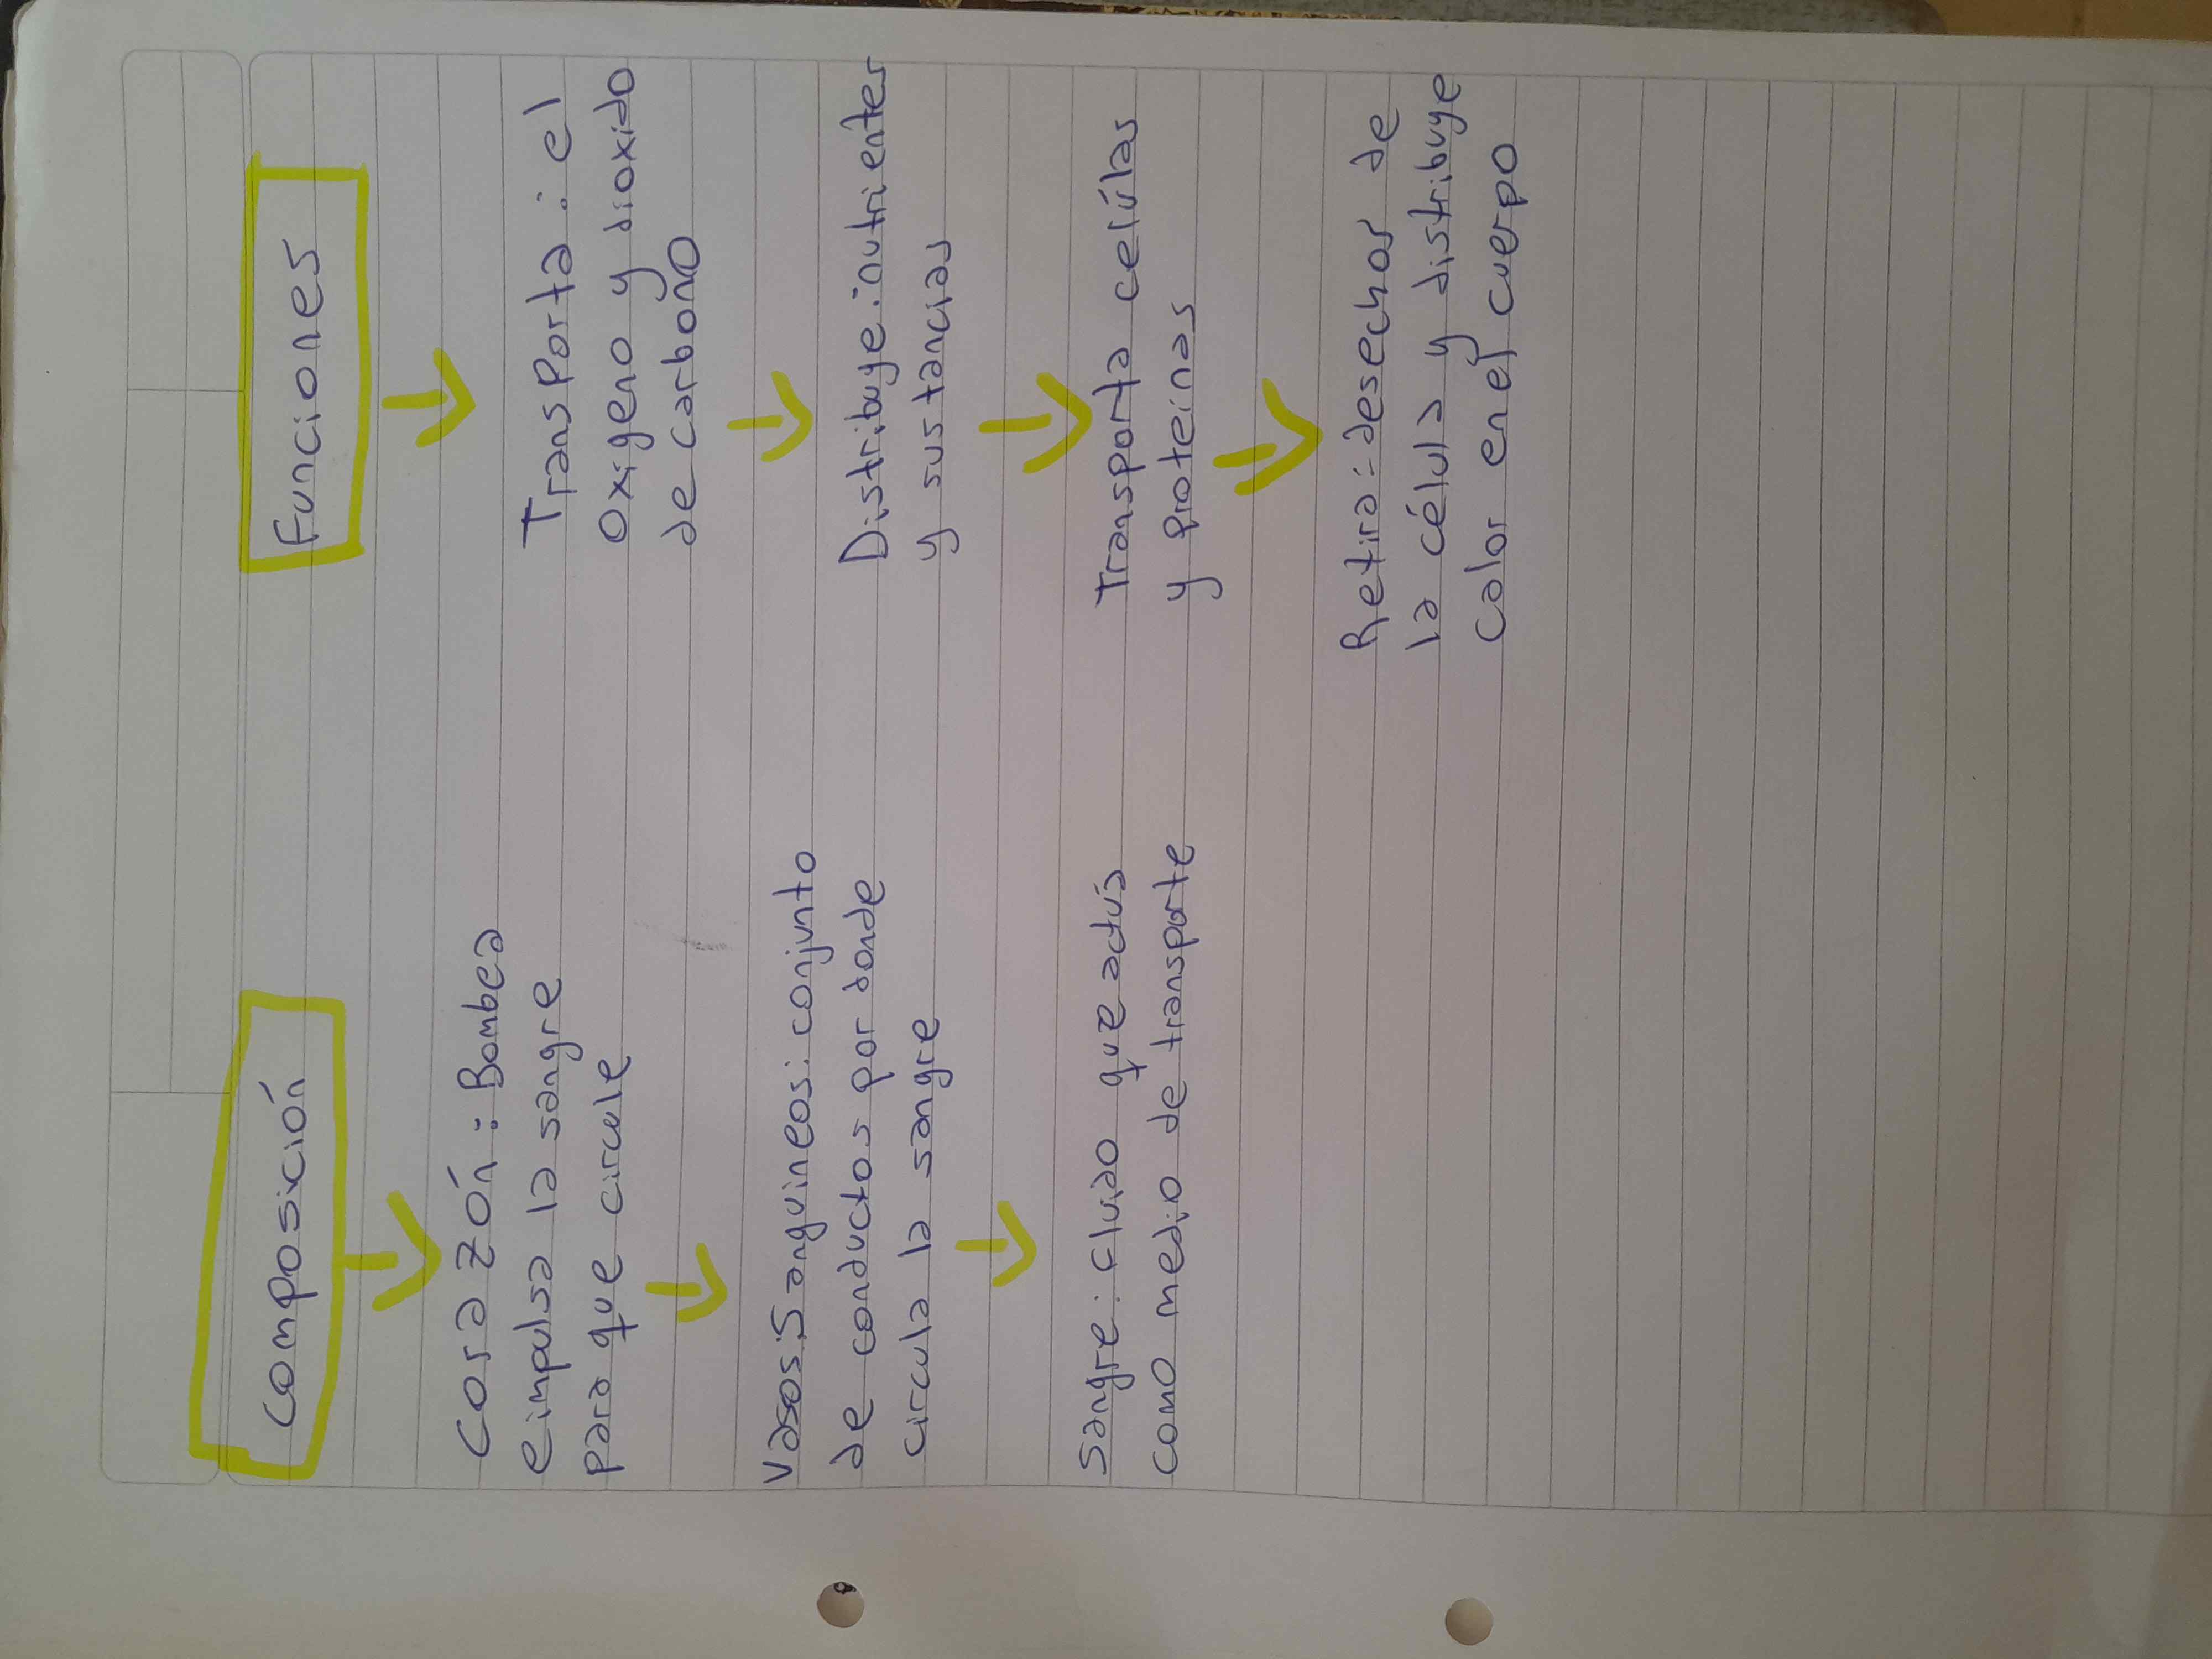 Composición
Corazón: Bombea
e impulsa la sangre
para que circule
Vasos Sanguineos: conjunto
de conductos por donde
circula la sangre
Sangre: fluido que actúa
como medio de transporte
Funciones
Transporta: el
Oxigeno y dioxido
de carbono
Distribuye: nutrientes
y sustancias
Transporta celúlas
y proteínas
Retira: desechos de
la célula y distribuye
calor en el cuerpo